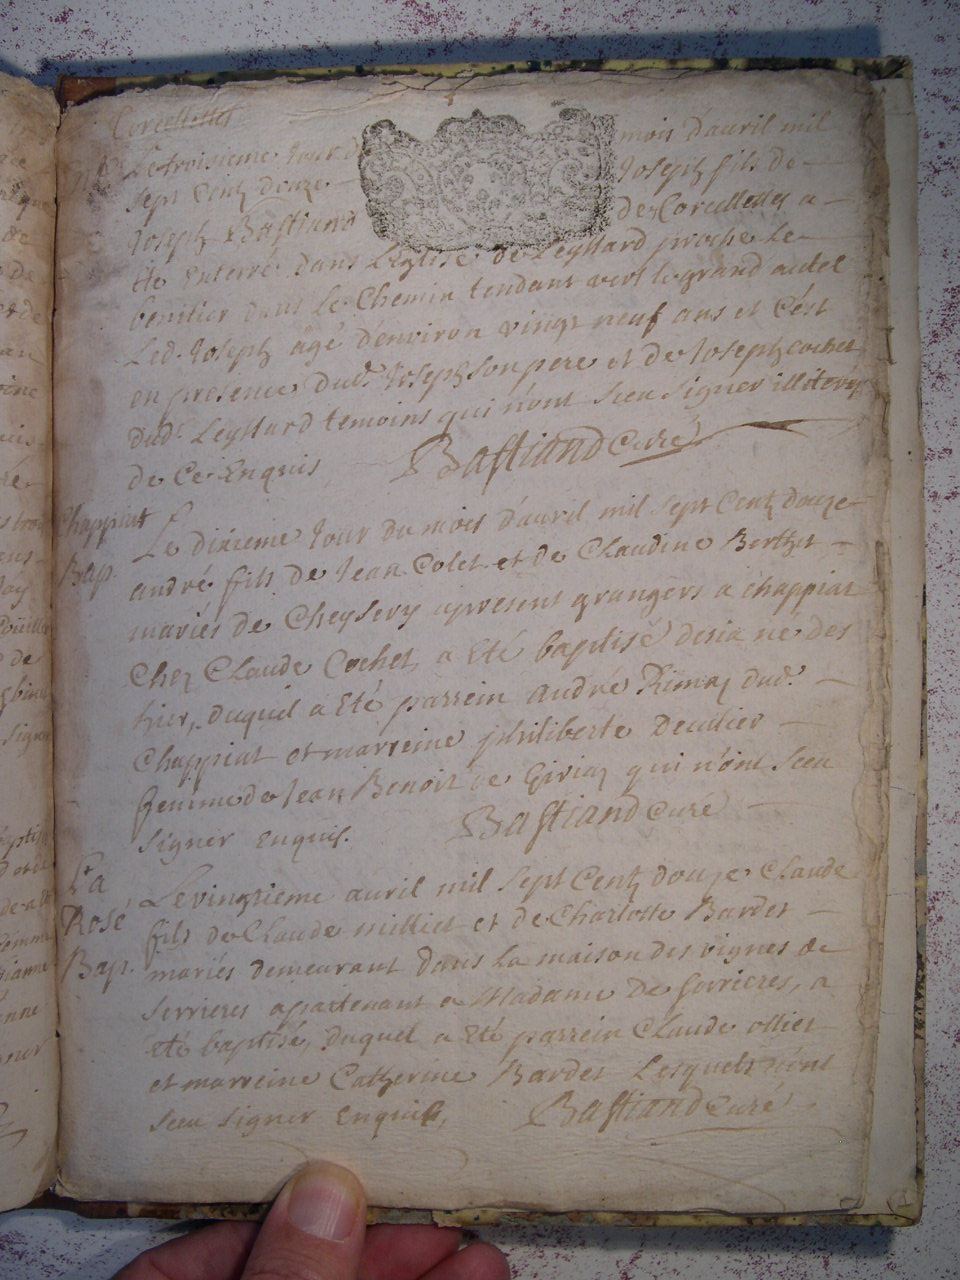 Corcellettes
Le troisieme jour d mois d'avril mil
sept Centz douze Joseph fils de
Joseph Bastiand de Corcellettes a
été Enterré dans L'Eglise de Leyssard proche Le
benitier dans Le Chemin tendant vers le grand autel
Led. Joseph agé d'environ vingt neuf ans et C'est
en presence dud. Joseph son pere et de Joseph cochet
dud. Leyssard temoins qui n'ont sceu signer illiterés
de Ce Enquis Bastiand Curé
Chappiat
Bap.
Le dixieme jour du mois d'avril mil sept Centz douze
andré fils de Jean Colet et de Claudine Berthet
mariés de Cheysery apresent grangers a chappiat
Chez Claude Cochet, a Eté baptisé desia né des
hier, duquel a Eté parrein André Rimaz dud.
Chappiat et marreine philiberte Deullier
femme de Jean Benoit de Giriaz qui n'ont sceu
signer Enquis. Bastiand Curé
La
Rosé
Bap.
Le vingtieme avril mil sept Centz douze Claude
fils de Claude milliet et de Charlotte Bardet
mariés demeurant dans La maison des vignes de
serrieres apartenant a Madame De serrieres, a
eté baptisé, duquel a Eté parrein Claude ollier
et marreine Catherine Bardet Lesquels n'ont
sceu signer Enquis, Bastiand Curé